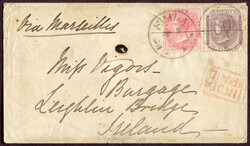 Via Marseilles
Miss Vigors
Burgage
Leighlin Bridge
Ireland
INDIA
PAID